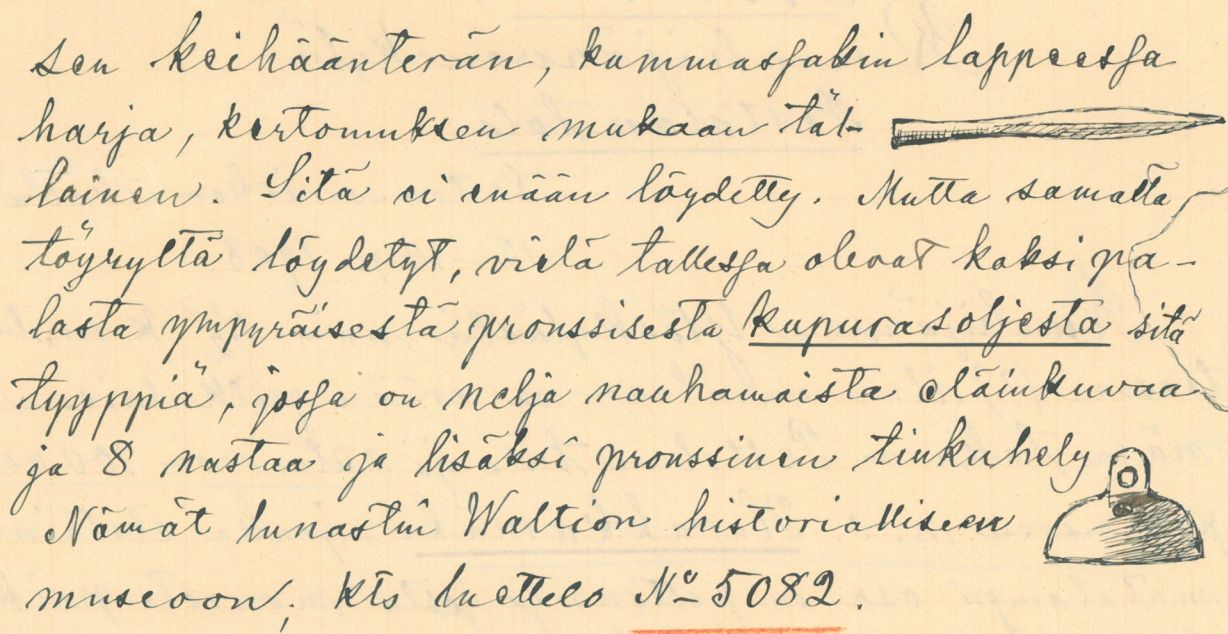 sen keihäänterän, kummassakin lappeessa
harja, kertomuksen mukaan täl-
lainen. Sitä ei enään löydetty. Mutta samalta
töyryltä löydetyt, vielä tallessa olevat kaksi pa-
lasta ympyräisestä pronssisesta kupurasoljesta sitä
tyyppiä, jossa on neljä nauhamaista eläinkuvaa
ja 8 nastaa ja lisäksi pronssinen tiukuhely
Nämät lunastin Waltion historialliseen
museoon, kts luettelo No 5082.